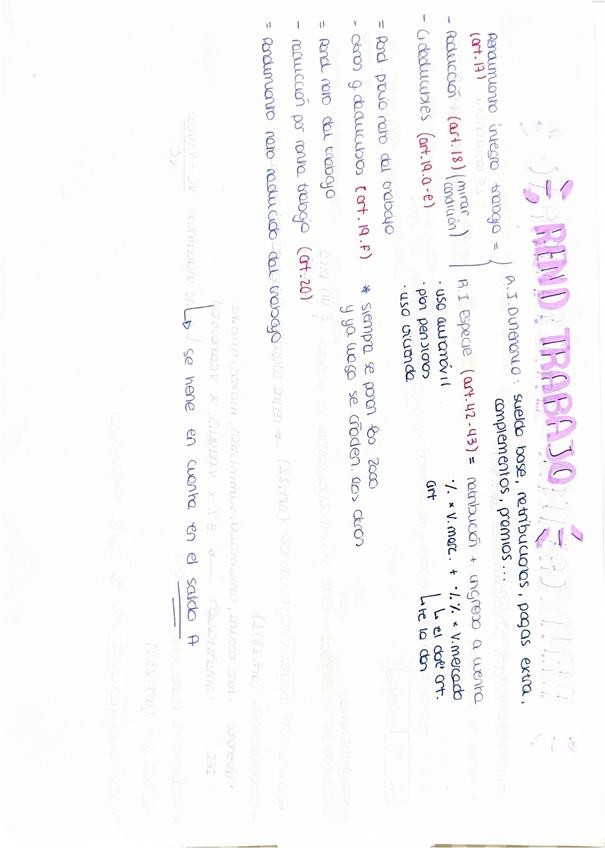 REND. TRABAJO
Rendimiento íntegro trabajo = {
(art.17)
R.I. Dinerario: sueldo base, retribuciones, pagas extra,
complementos, premios...
R I Especie (art.42-43) = retribución + ingreso a cuenta
% x V.merc. + % x V.mercado
art
↳ el dde art.
↳ te la dan
· uso automóvil
· plan pensiones
· uso vivienda
- Reducción (art.18) (mirar condición)
- G deducibles (art.19.a-e)
= Rend. previo neto del trabajo
- otros g. deducibles (art.19.f) * siempre se ponen los 2000
y ya luego se añaden los otros
= Rend neto del trabajo
- reducción por renta trabajo (art.20)
= Rendimiento neto reducido del trabajo
↳ se tiene en cuenta en el saldo A